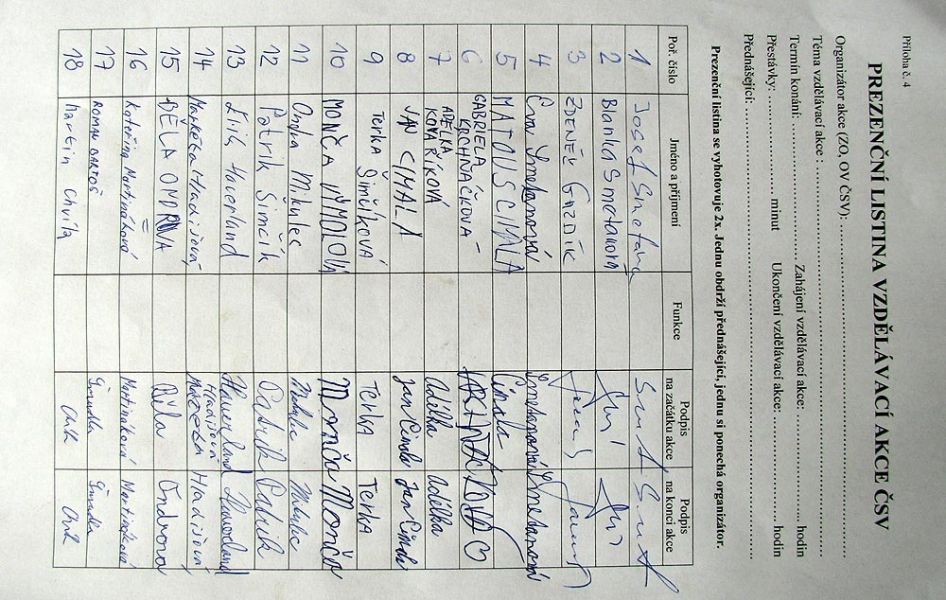 Příloha č. 4
PREZENČNÍ LISTINA VZDĚLÁVACÍ AKCE ČSV
Organizátor akce (ZO, OV ČSV):
Téma vzdělávací akce :
Termín konání: Zahájení vzdělávací akce: hodin
Přestávky: minut Ukončení vzdělávací akce: hodin
Přednášející :
Prezenční listina se vyhotovuje 2x. Jednu obdrží přednášející, jednu si ponechá organizátor.
Poř. číslo Jméno a příjmení Funkce Podpis na začátku akce Podpis na konci akce
1 Josef Smetana
2 Blanka Smetanová
3 ZDENĚK GAZDÍK
4 Eva Smetanová Smetanová Smetanová
5 MATOUŠ CIMALA Cimala
6 GABRIELA KRCHŇAČKOVÁ
7 ADÉLKA KOVAŘÍKOVÁ Adélka Adélka
8 JAN CIMALA Jan Jan
9 Terka Šimčíková Terka Terka
10 MONČA Monča Monča
11 Ondra Mikulec
12 Patrik Šimčík Patrik Patrik
13 Haverland Haverland Haverland
14 Markéta Hladišová Hladišová Hladišová
15 Ondrova
16 Kateřina Martináková Martináková Martináková
17 ROMAN BARTOŠ
18 Martin Chvíla